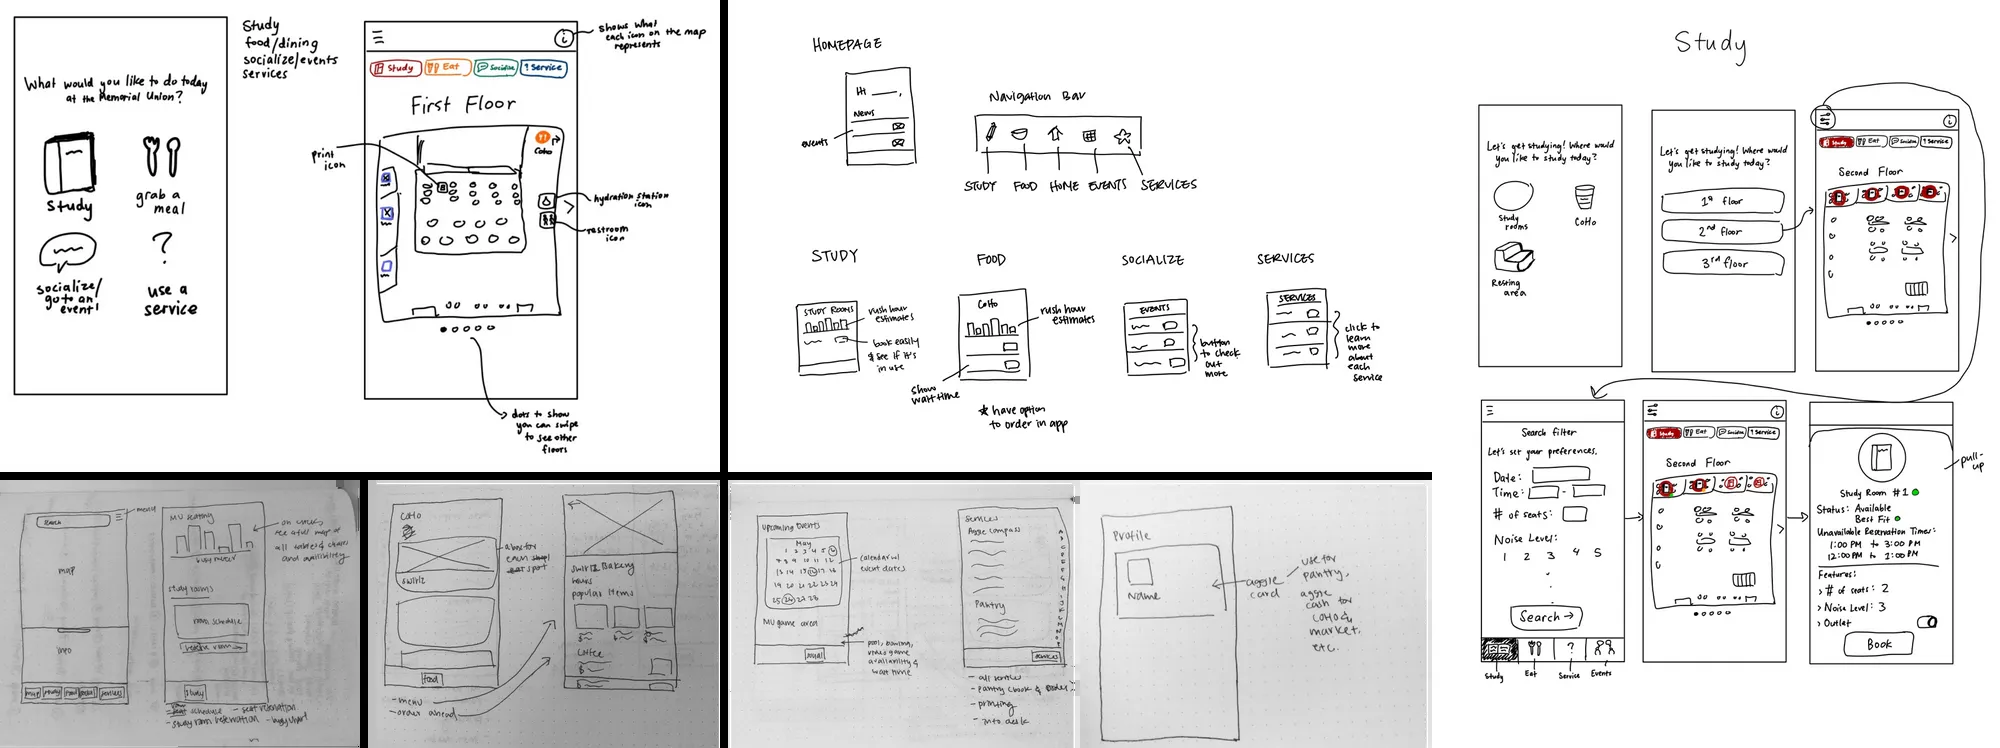 What would you like to do today
at the Memorial Union?
Study
grab a
meal
socialize/
go to an
event
?
use a
service
Study
food/dining
socialize/events
services
i
shows what
each icon on the map
represents
Study
Eat
Socialize
? Service
First Floor
print
icon
CoHo
hydration station
icon
restroom
icon
dots to show
you can swipe
to see other
floors
HOMEPAGE
Hi ___,
News
events
Navigation Bar
STUDY
FOOD
HOME
EVENTS
SERVICES
STUDY
STUDY ROOMS
rush hour
estimates
book easily
& see if it's
in use
FOOD
CoHo
rush hour
estimates
show
wait time
☆ have option
to order in app
SOCIALIZE
EVENTS
button
to check
out
more
SERVICES
SERVICES
click to
learn
more
about
each
service
Study
Let's get studying! Where would
you like to study today?
Study
rooms
CoHo
Resting
area
Let's get studying! Where would
you like to study today?
1st floor
2nd floor
3rd floor
i
Study
Eat
Socialize
? Service
Second Floor
Search filter
Let's set your preferences.
Date:
Time: -
# of seats:
Noise Level:
1 2 3 4 5
Search →
Study
Eat
?
Service
Events
i
Study
Eat
Socialize
? Service
Second Floor
pull-
up
Study Room #1
Status: Available
Best Fit
Unavailable Reservation Times:
1:00 PM to 3:00 PM
12:00 PM to 1:00 PM
Features:
> # of seats: 2
> Noise Level: 3
> Outlet
Book
search
menu
map
info
map
study
food
social
services
MU seating
busy meter
study rooms
room schedule
reserve room
study
see a full map of
all tables & chairs
and availibility
schedule
- seat reservation
- study room reservation
CoHo
swirlz
food
a box for
each
spot
- menu
- order ahead
Swirlz Bakery
hours
popular items
coffee
upcoming events
May
1 2 3 4 5 6
7 8 9 10 11 12
13 14 15 16 17 18
19 20 21 22 23 24
25 26 27 28
calendar w/
event dates
MU game area
social
pool, bowling,
video game
availability &
wait time
Services
Aggie Compass
Pantry
services
- all services
- pantry
- printing
- info desk
Profile
Name
aggie
card
use for
pantry,
aggie
cash for
CoHo &
market,
etc.